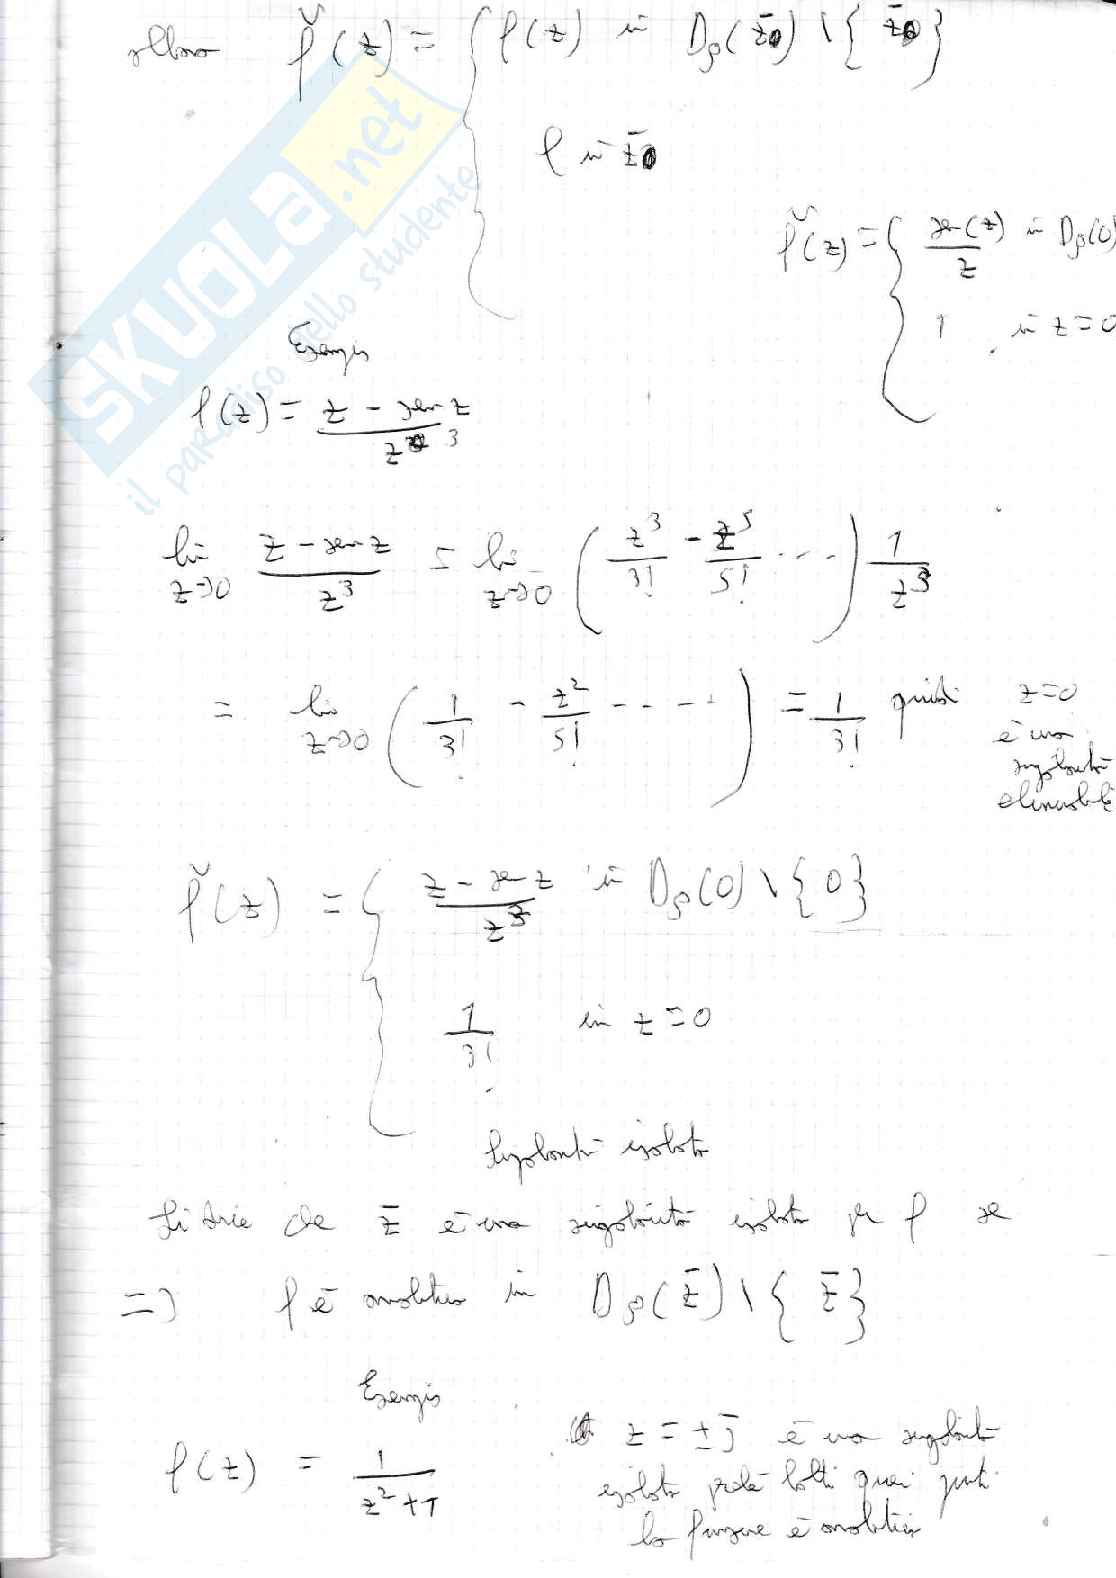 allora f̌(z) = { f(z) in Dρ(z̄0) \ { z̄0 }
l in z̄0
f̌(z) = { sen(z)/z in Dρ(0)
1 in z=0
SKUOLA.net
il paradiso dello studente
Esempio
f(z) = z - sen z / z^3
lim z→0 z - sen z / z^3 = lim z→0 ( z^3/3! - z^5/5! ... ) 1/z^3
= lim z→0 ( 1/3! - z^2/5! .... ) = 1/3! quindi z=0
è una
singolarità
eliminabile
f̌(z) = { z - sen z / z^3 in Dρ(0) \ { 0 }
1/3! in z=0
Singolarità isolata
Si dice che z̄ è una singolarità isolata per f se
=> f è analitica in Dρ(z̄) \ { z̄ }
Esempio
f(z) = 1 / z^2+1
z = ±j è una singolarità
isolata poiché tolti quei punti
la funzione è analitica